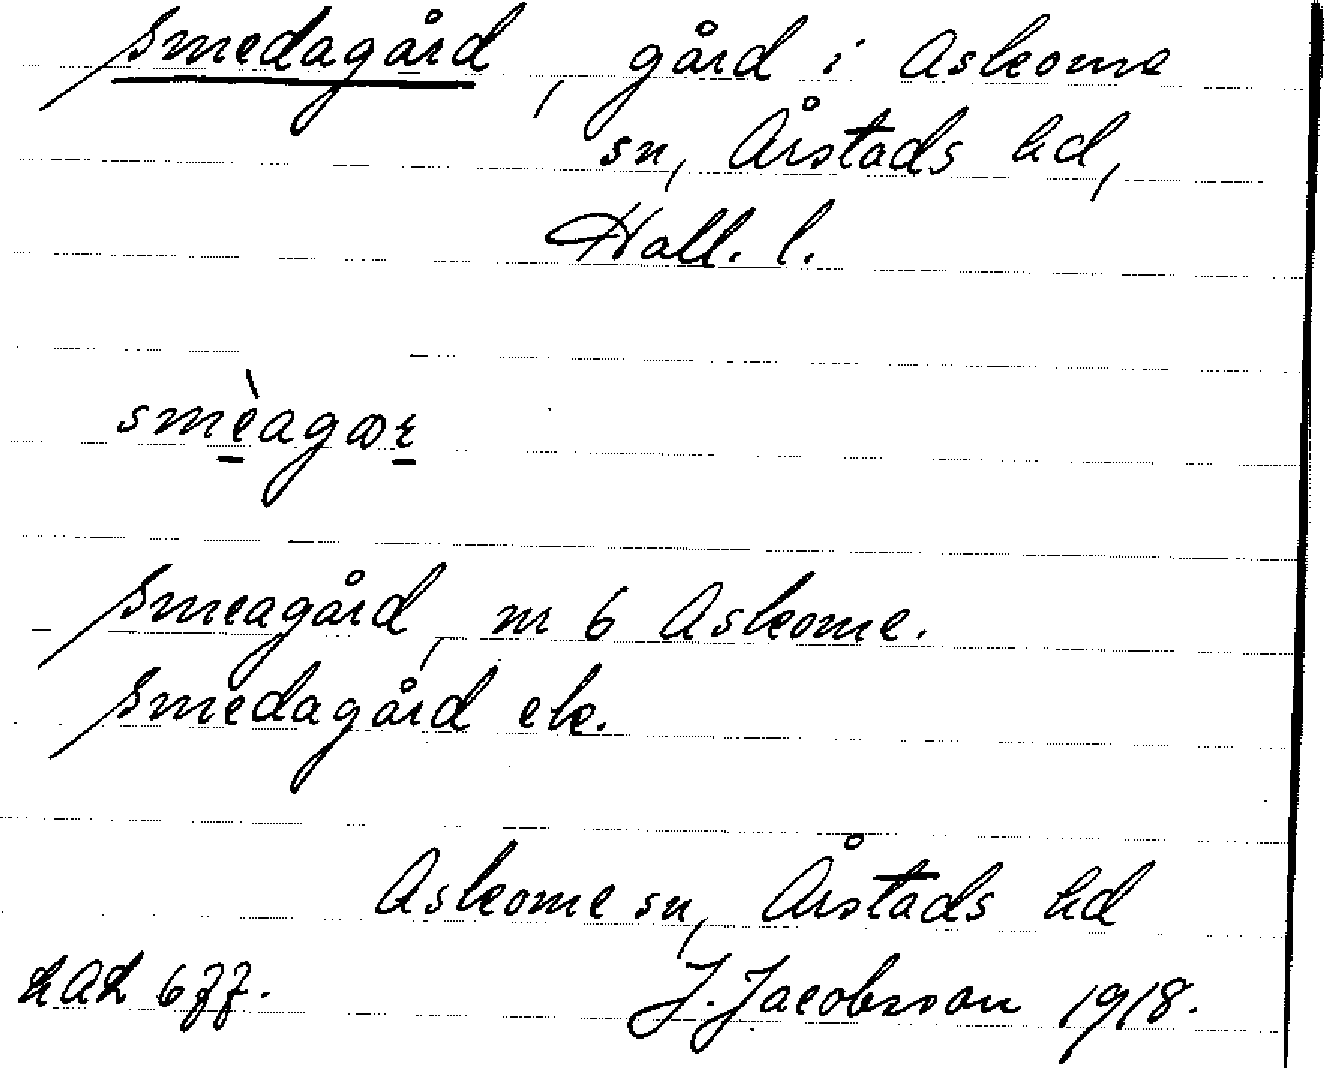 Smedagård, gård i Askome
sn, Årstads hd,
Hall. l.
smèagær
Smeagård, nr 6 Askome.
Smedagård ek.
Askome sn, Årstads hd
J. Jacobsson 1918.